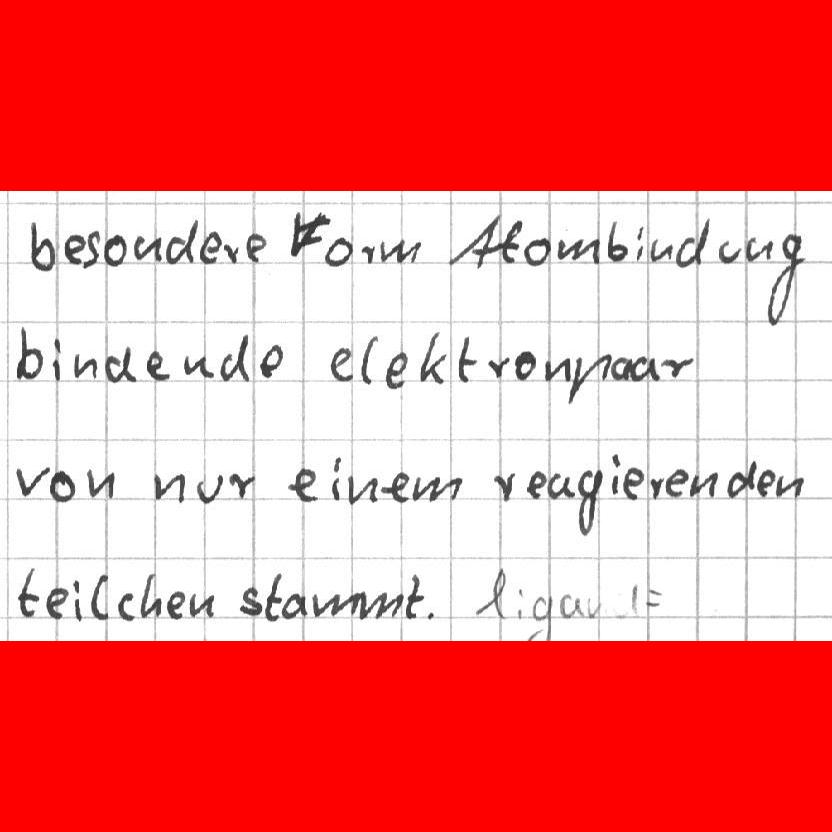 besondere Form Atombindung
bindende elektronpaar
von nur einem reagierenden
teilchen stammt.